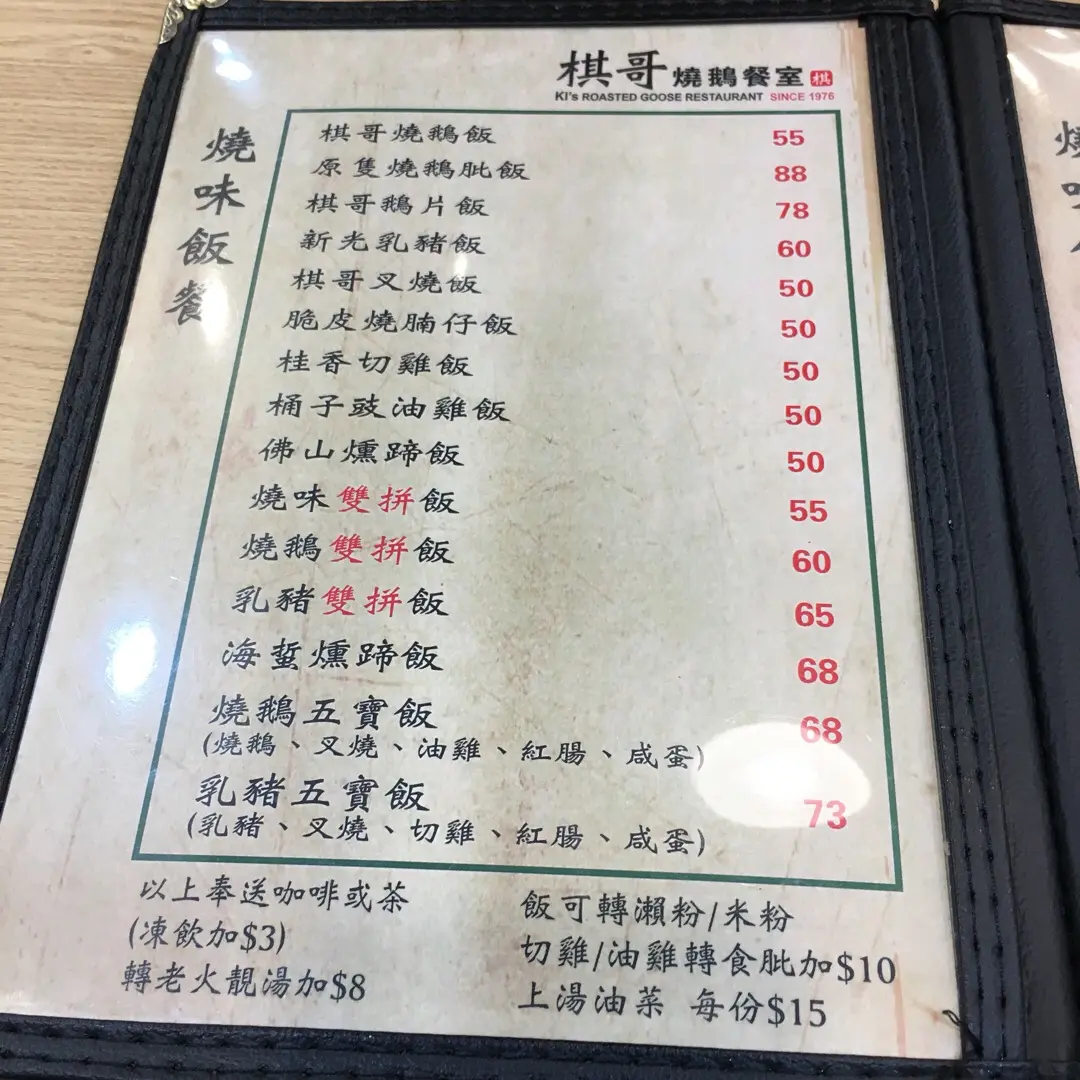 棋哥 燒鵝餐室 棋
KI's ROASTED GOOSE RESTAURANT SINCE 1976
燒味飯餐
棋哥燒鵝飯 55
原隻燒鵝肶飯 88
棋哥鵝片飯 78
新光乳豬飯 60
棋哥叉燒飯 50
脆皮燒腩仔飯 50
桂香切雞飯 50
桶子豉油雞飯 50
佛山燻蹄飯 50
燒味雙拼飯 55
燒鵝雙拼飯 60
乳豬雙拼飯 65
海蜇燻蹄飯 68
燒鵝五寶飯 68
(燒鵝、叉燒、油雞、紅腸、咸蛋)
乳豬五寶飯 73
(乳豬、叉燒、切雞、紅腸、咸蛋)
以上奉送咖啡或茶
(凍飲加$3)
轉老火靚湯加$8
飯可轉瀨粉/米粉
切雞/油雞轉食肶加$10
上湯油菜 每份$15